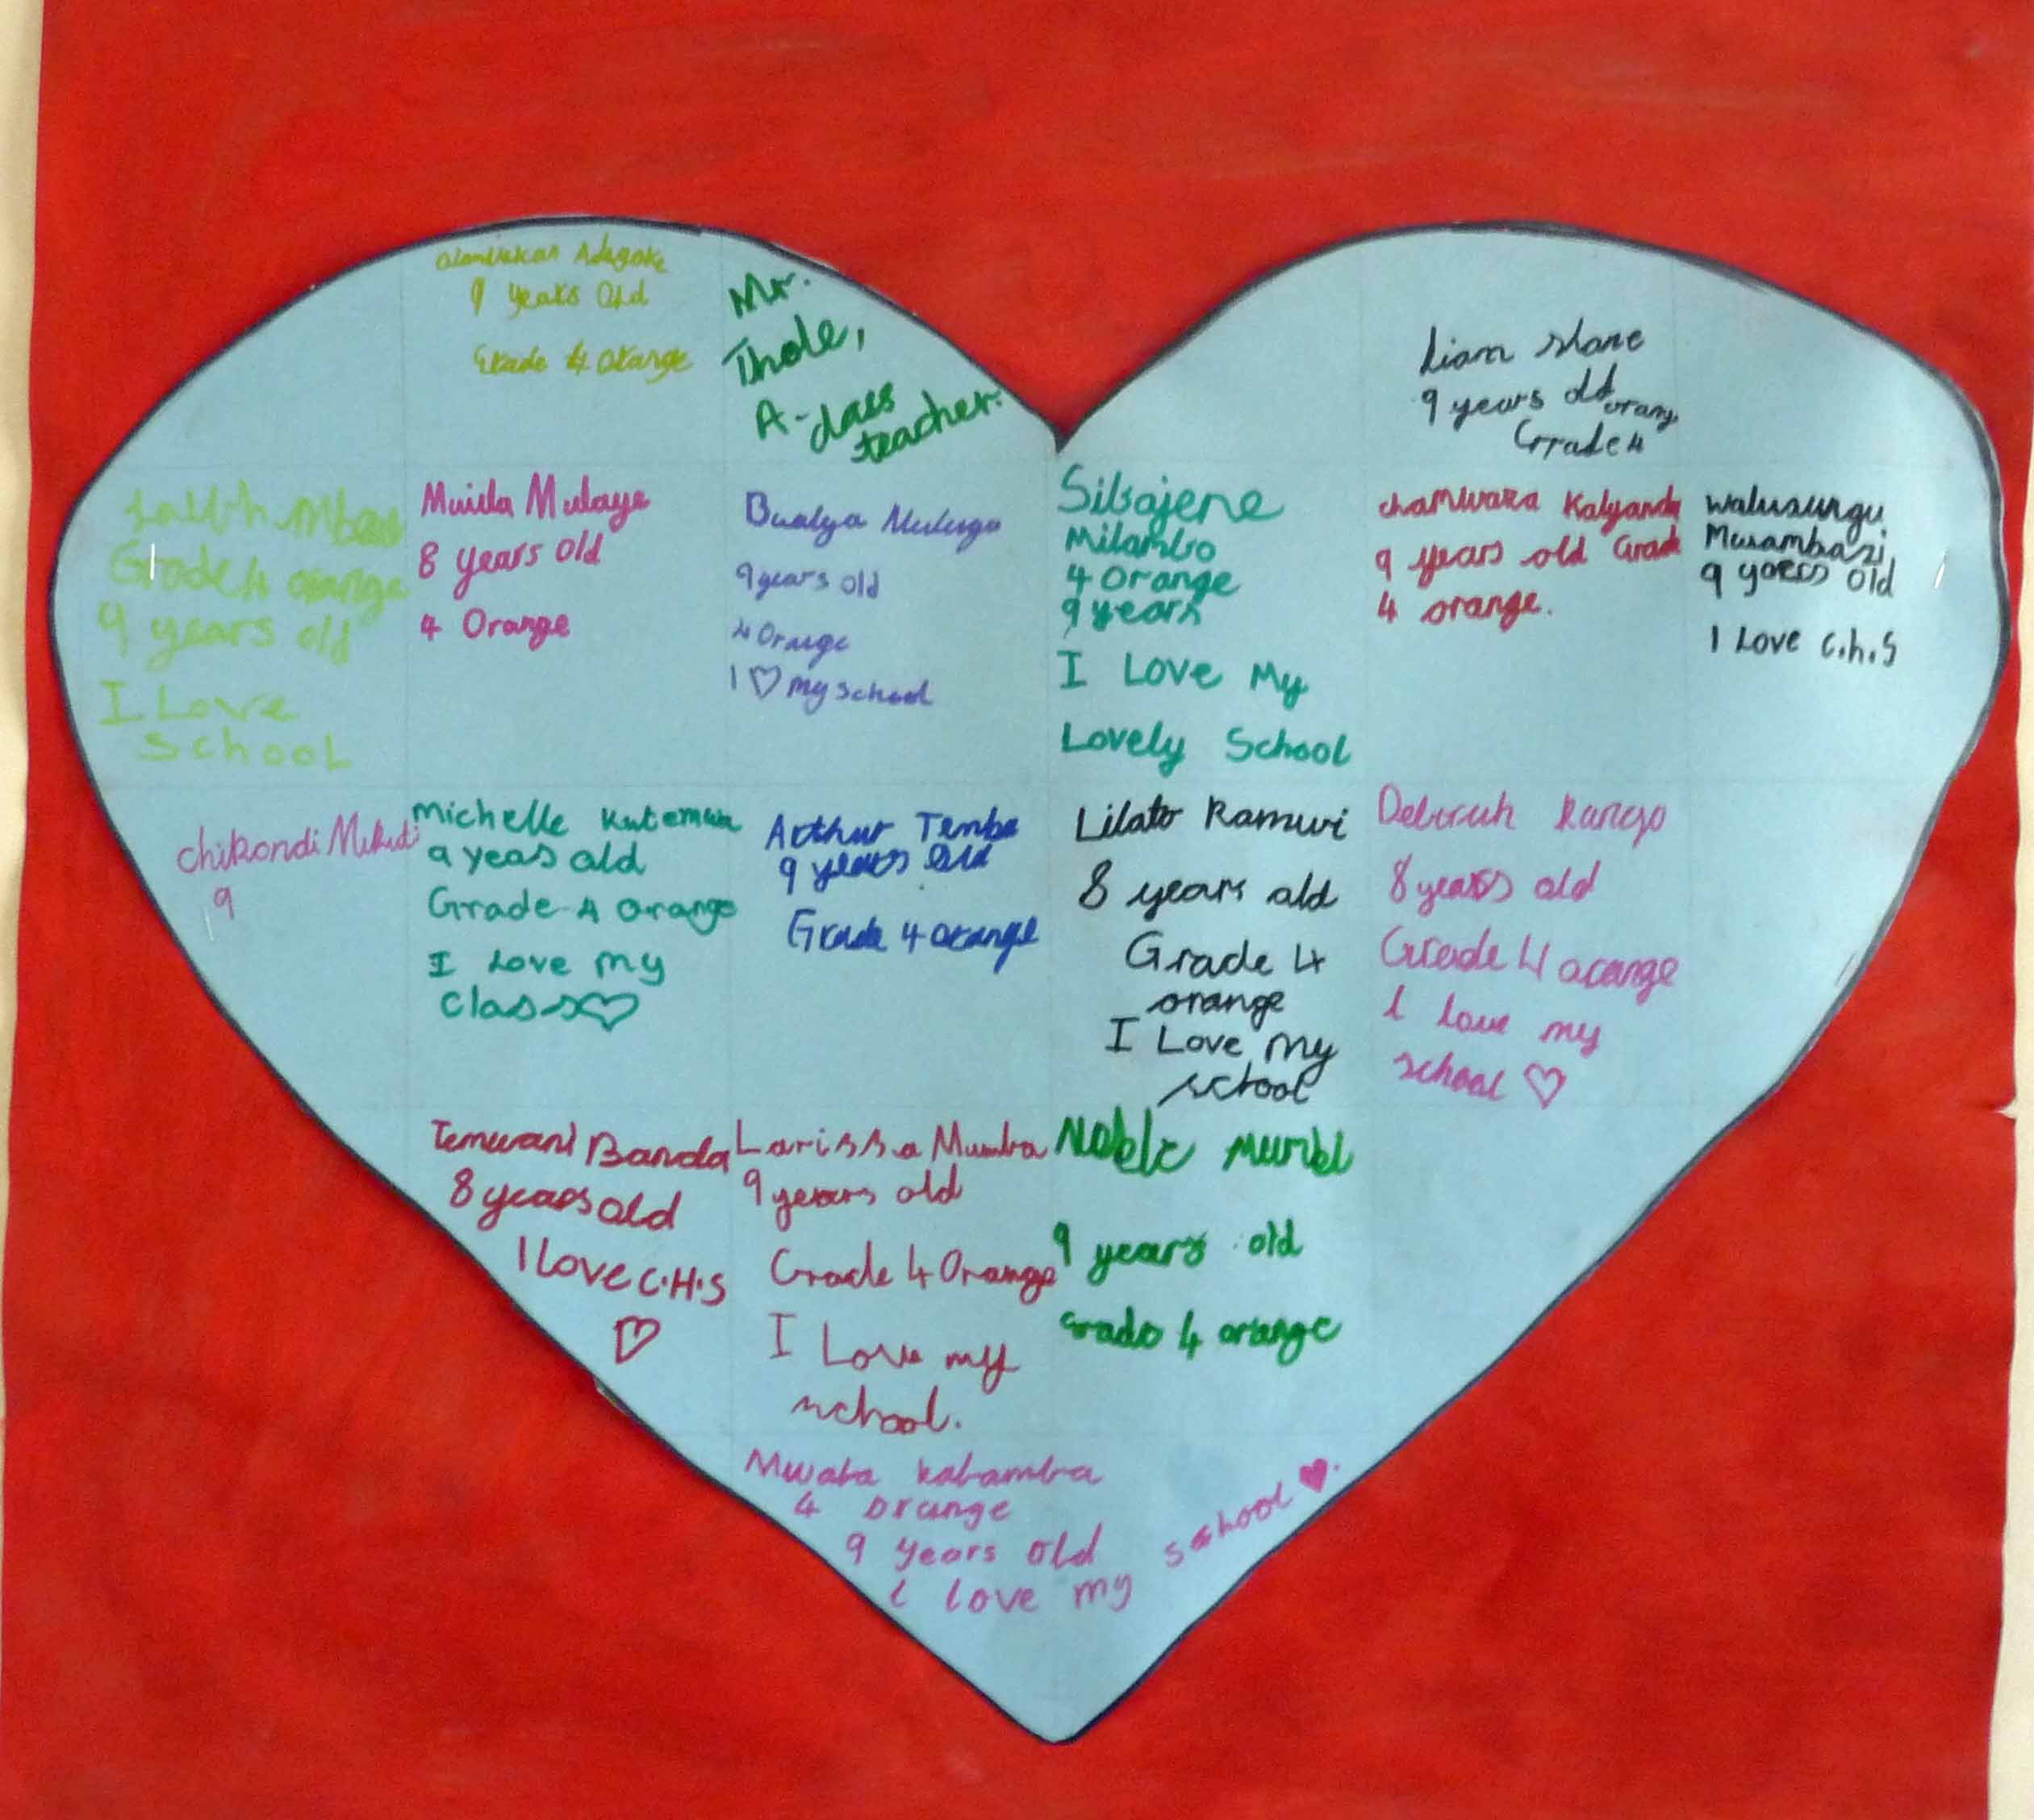 Adegoke
9 years Old
Grade 4 Orange
Mr.
Thole,
A-class
teacher.
Liam
9 years old
orang
Grade 4
Grade 4 orange
9 years old
I Love
School
Muila Mulaye
8 years old
4 Orange
Bwalya
9 years old
4 Orange
I ♡ my school
Sibajene
Milambo
4 Orange
9 years
I Love My
Lovely School
chamwaza Kalyanda
9 years old Grade
4 orange.
walusungu
Musambazi
9 years old
I Love C.h.S
chikondi
9
Michelle
9 yeas old
Grade 4 orange
I Love my
class ♡
Arthur Tembo
9 years old
Grade 4 orange
Lilato Ramuvi
8 years old
Grade 4
orange
I Love my
school
8 years old
Grade 4 orange
I love my
school ♡
Temwani Banda
8 years old
I Love C.H.S
♡
Larissa Mumba
9 years old
Grade 4 Orange
I Love my
school.
Noble
9 years old
Grade 4 orange
Mwaba kabamba
4 orange
9 years old
I love my school ♥